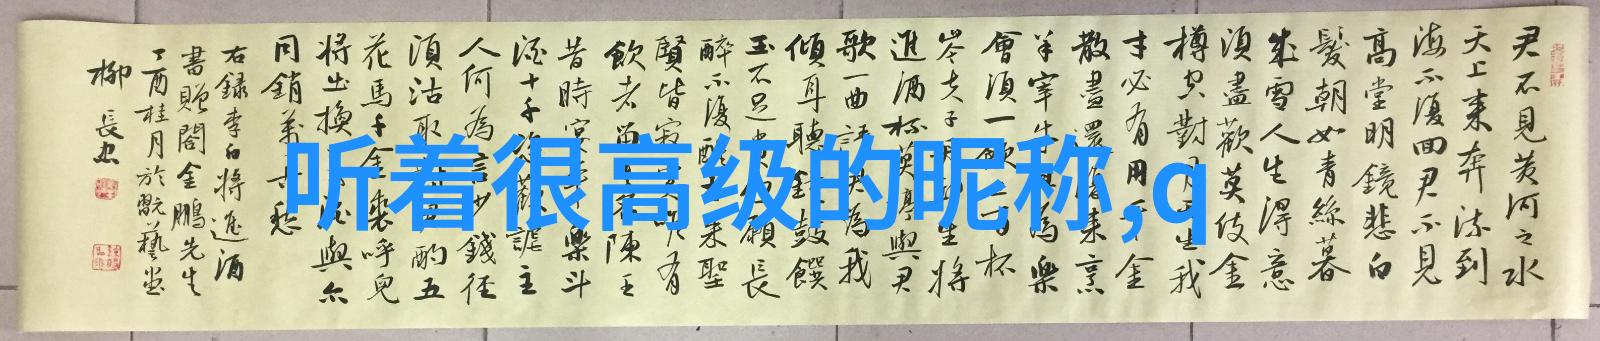 君不見黃河之水
天上来奔流到
海不復回君不見
高堂明鏡悲白
髮朝如青絲暮
成雪人生得意
須盡歡莫使金
樽空對月天生我
才必有用千金
散盡還復来烹
羊宰牛且為樂
會須一飲三百杯
岑夫子丹丘生將
進酒杯莫停與君
歌一曲請君為我
傾耳聽鐘鼓饌
玉不足貴但願長
醉不復醒古来聖
賢皆寂寞唯有
飲者留其名陳王
昔時宴平樂斗
酒十千恣歡謔主
人何為言少錢徑
須沽取對君酌五
花馬千金裘呼兒
將出換美酒與尔
同銷萬古愁
右録李白將進酒
書贈閤金鵬先生
丁酉桂月於翫藝堂
柳長忠
听着很高级的昵称,q